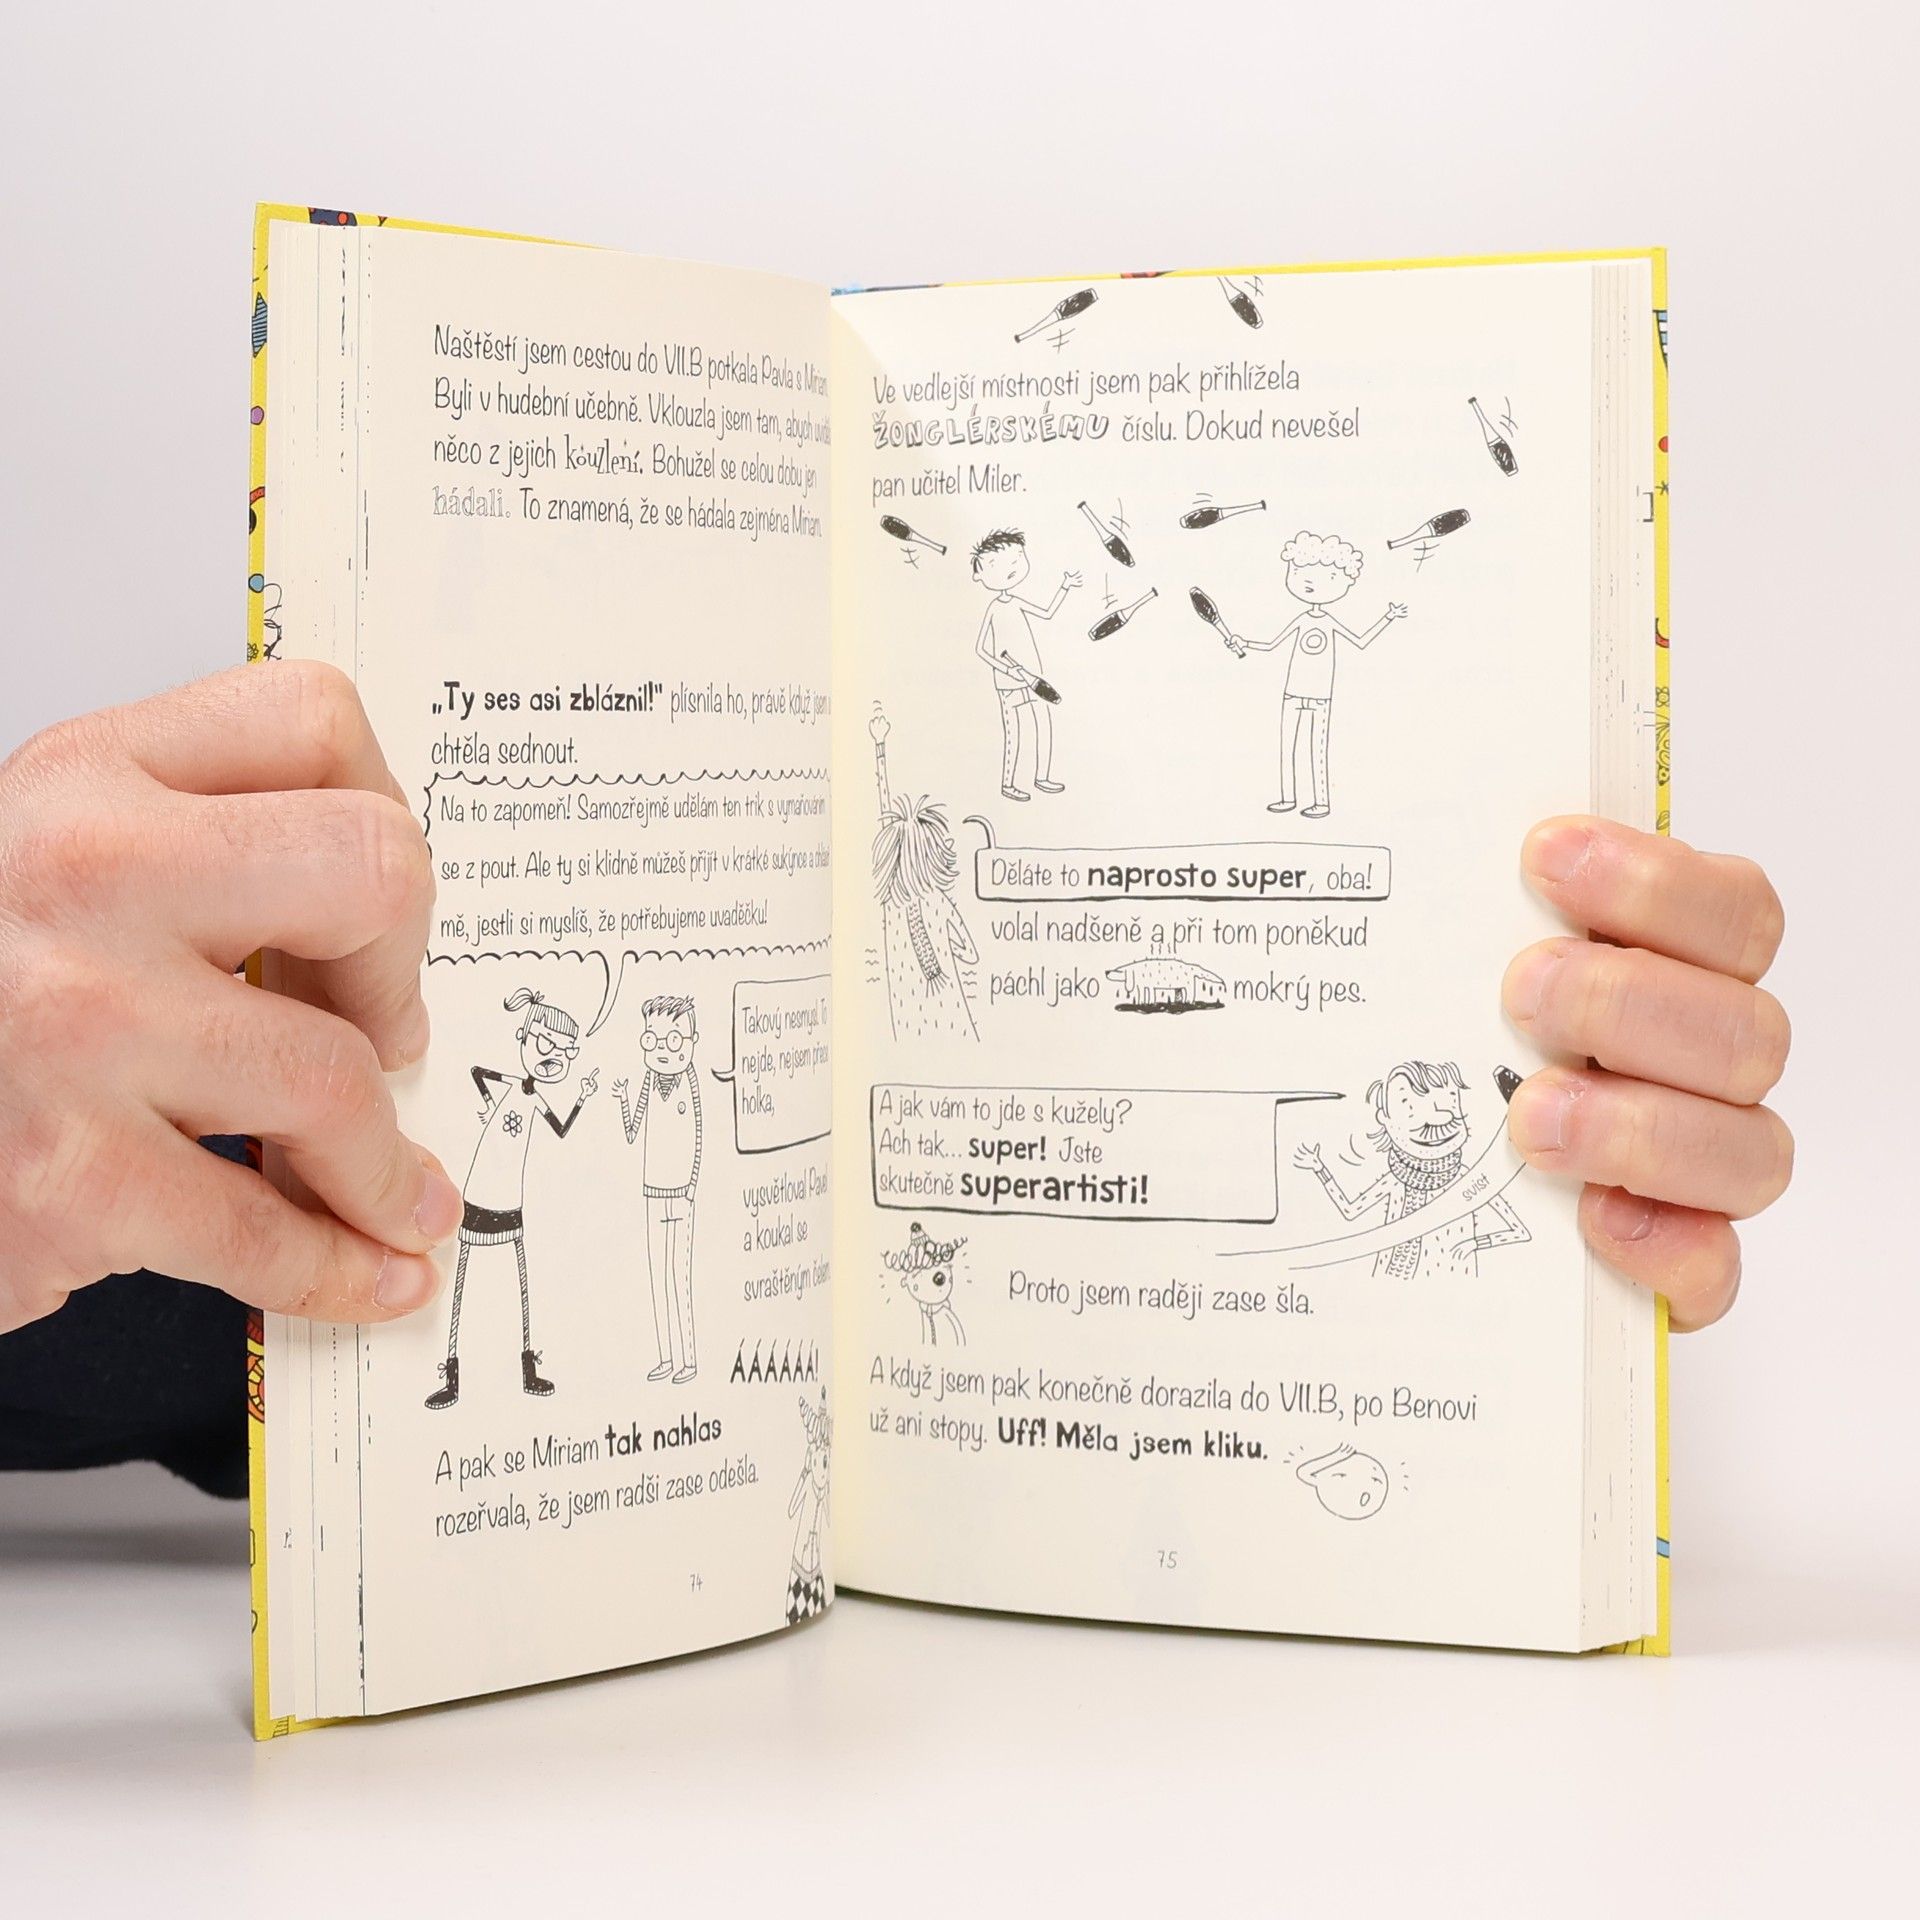 Naštěstí jsem cestou do VII.B potkala Pavla s
Byli v hudební učebně. Vklouzla jsem tam, abych
něco z jejich kouzlení. Bohužel se celou dobu jen
hádali. To znamená, že se hádala zejména Miriam.
„Ty ses asi zbláznil!" plísnila ho, právě když jsem
chtěla sednout.
Na to zapomeň! Samozřejmě udělám ten trik s vymaňováním
se z pout. Ale ty si klidně můžeš přijít v krátké sukýnce a
mě, jestli si myslíš, že potřebujeme uvaděčku!
Takový nesmysl. To
nejde, nejsem přece
holka,
vysvětloval Pavel
a koukal se
svraštěným čelem.
ÁÁÁÁÁÁ!
A pak se Miriam tak nahlas
rozeřvala, že jsem radši zase odešla.
74
Ve vedlejší místnosti jsem pak přihlížela
ŽONGLÉRSKÉMU číslu. Dokud nevešel
pan učitel Miler.
Děláte to naprosto super, oba!
volal nadšeně a při tom poněkud
páchl jako mokrý pes.
A jak vám to jde s kužely?
Ach tak... super! Jste
skutečně superartisti!
svist
Proto jsem raději zase šla.
A když jsem pak konečně dorazila do VII.B, po Benovi
už ani stopy. Uff! Měla jsem kliku.
75